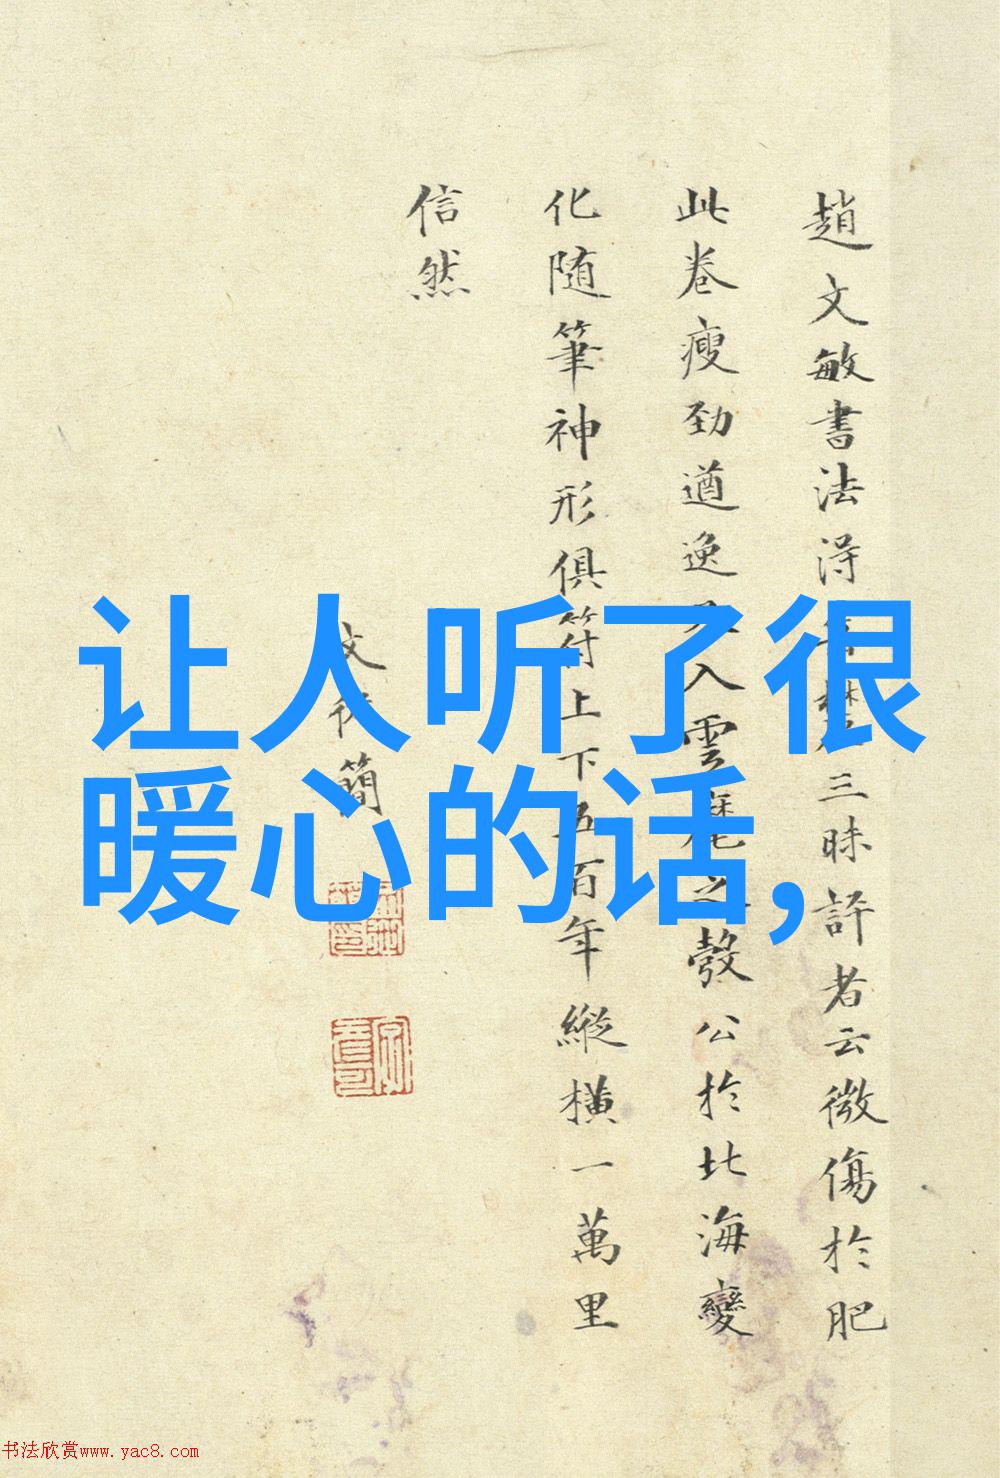 趙文敏書法得
三昧評者云微傷於肥
此卷瘦劲遒逸
入雲麾之彀公於北海變
化随筆神形俱符上下五百年縱横一萬里
信然
文
簡
让人听了很
暖心的话,
书法欣赏www.yac8.com